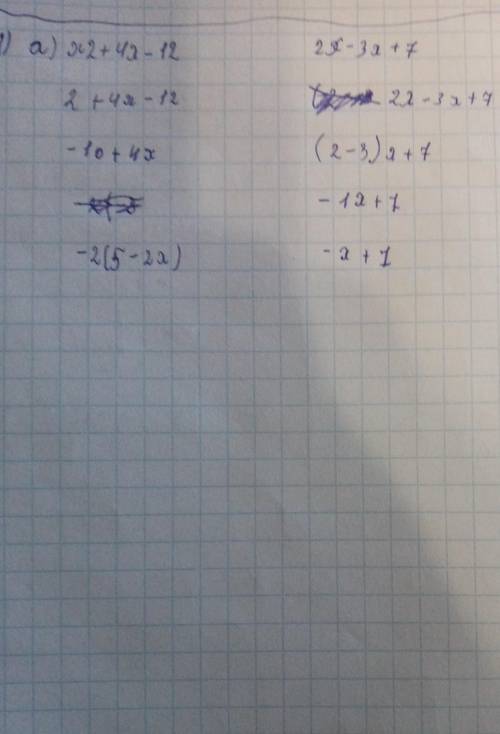 1) a) x2+4x-12 2x-3x+7
2+4x-12 2x-3x+7
-10+4x (2-3)x+7
-1x+7
-2(5-2x) -x+7